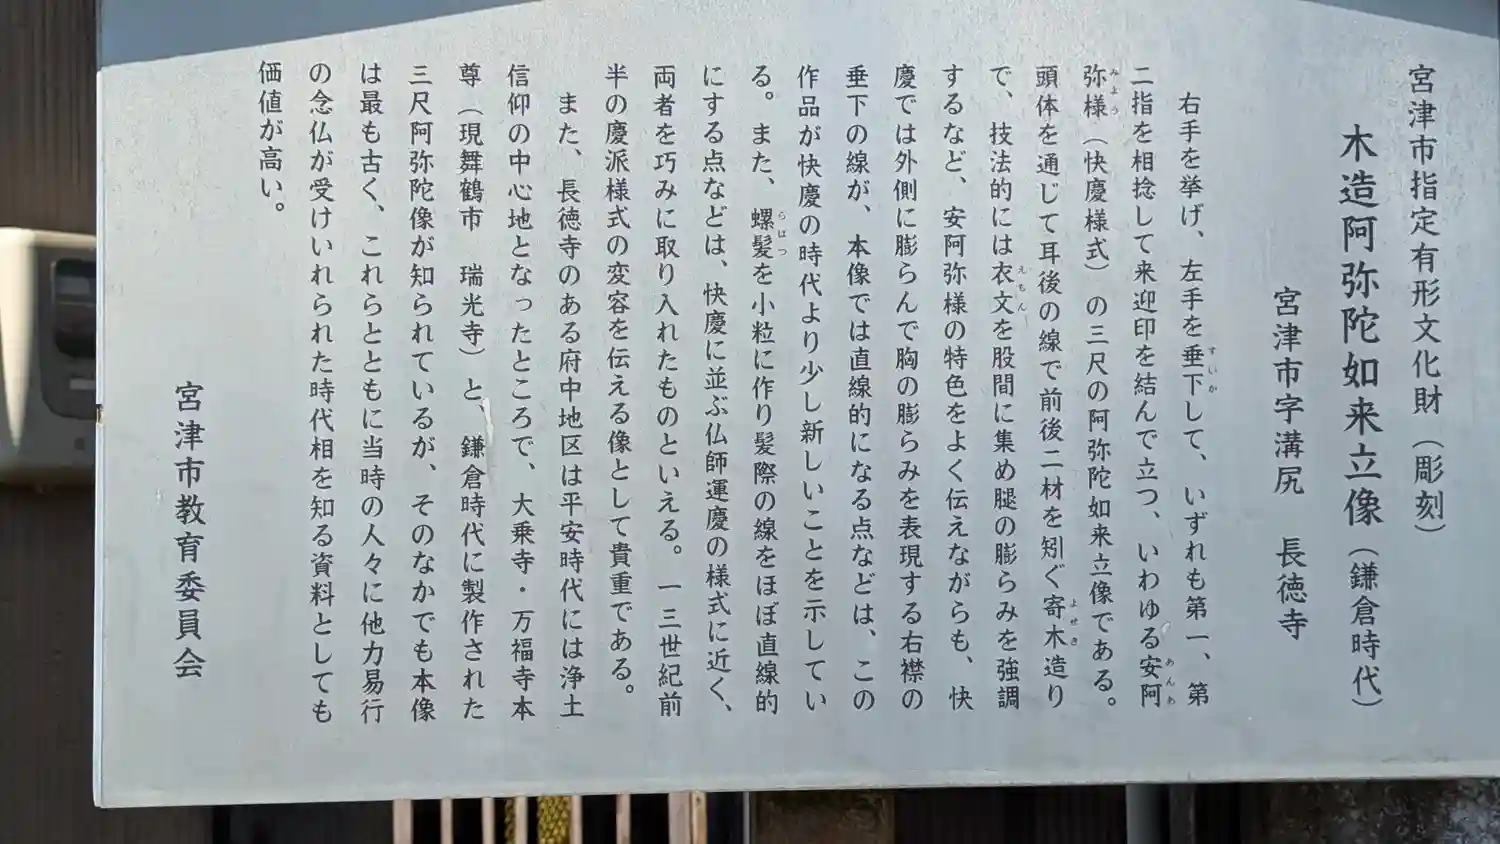 宮津市指定有形文化財（彫刻）
木造阿弥陀如来立像（鎌倉時代）
宮津市字溝尻　長徳寺
右手を挙げ、左手を垂下して、いずれも第一、第
二指を相捻して来迎印を結んで立つ、いわゆる安阿
弥様（快慶様式）の三尺の阿弥陀如来立像である。
頭体を通じて耳後の線で前後二材を矧ぐ寄木造り
で、技法的には衣文を股間に集め腿の膨らみを強調
するなど、安阿弥様の特色をよく伝えながらも、快
慶では外側に膨らんで胸の膨らみを表現する右襟の
垂下の線が、本像では直線的になる点などは、この
作品が快慶の時代より少し新しいことを示してい
る。また、螺髪を小粒に作り髪際の線をほぼ直線的
にする点などは、快慶に並ぶ仏師運慶の様式に近く、
両者を巧みに取り入れたものといえる。一三世紀前
半の慶派様式の変容を伝える像として貴重である。
また、長徳寺のある府中地区は平安時代には浄土
信仰の中心地となったところで、大乗寺・万福寺本
尊（現舞鶴市　瑞光寺）と、鎌倉時代に製作された
三尺阿弥陀像が知られているが、そのなかでも本像
は最も古く、これらとともに当時の人々に他力易行
の念仏が受けいれられた時代相を知る資料としても
価値が高い。
宮津市教育委員会